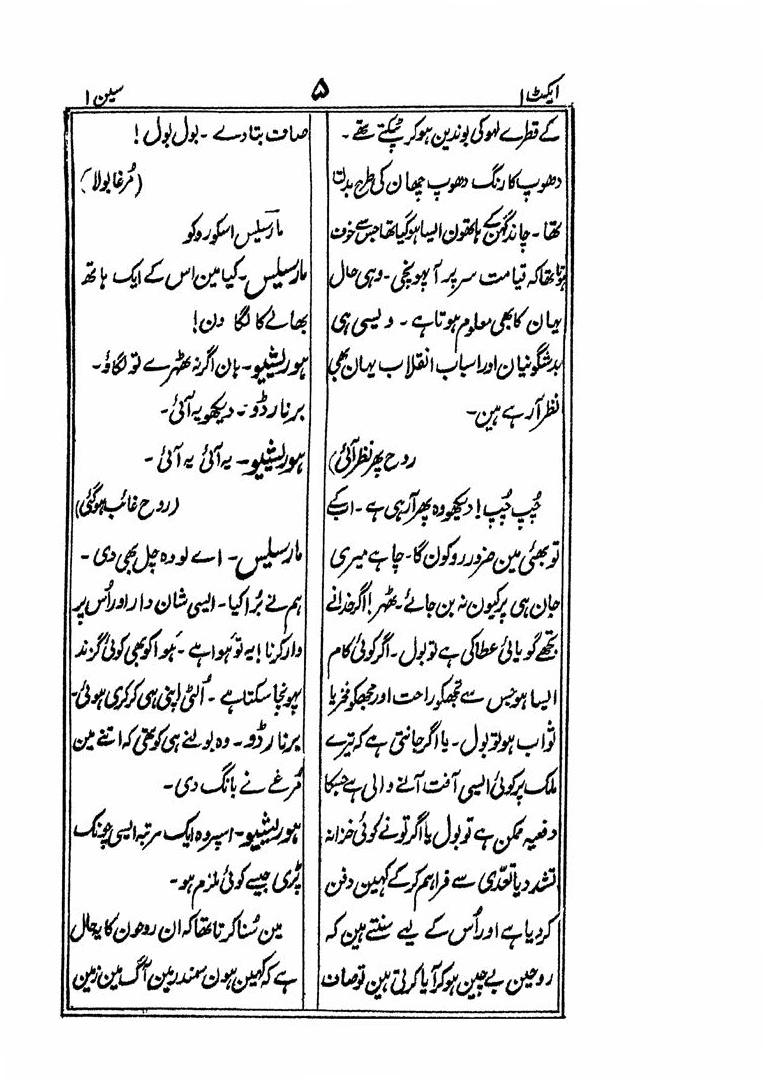 ایکٹ ۱
۵
سین ۱
کے قطرے لہو کی بوندین ہوکر ٹپکتے تھے۔
دھوپ کا رنگ دھوپ چھان کی طرح بدلتا
تھا۔ چاند گہن کے ہاتھون ایسا ہوگیا تھا جس سے خوف
ہوتا تھا کہ قیامت سر پر آ پہونچی۔ وہی حال
یہان کا بھی معلوم ہوتا ہے۔ ویسی ہی
بدشگونیان اور اسباب انقلاب یہان بھی
نظر آ رہے ہین۔
روح پھر نظر آئی)
چُپ چُپ! دیکھو وہ پھر آ رہی ہے۔ اب کے
تو بھئی مین ضرور روکون گا۔ چاہے میری
جان ہی پر کیون نہ بن جائے۔ ٹھہر! اگر خدا نے
تجھے گویائی عطا کی ہے تو بول۔ اگر کوئی کام
ایسا ہو جس سے تجھکو راحت اور مجھکو فخر یا
ثواب ہو تو بول۔ یا اگر جانتی ہے کہ تیرے
ملک پر کوئی ایسی آفت آنے والی ہے جسکا
دفعیہ ممکن ہے تو بول یا اگر تو نے کوئی خزانہ
تشدد یا تعدّی سے فراہم کرکے کہین دفن
کر دیا ہے اور اُس کے لیے سنتے ہین کہ
روحین بے چین ہوکر آیا کرتی ہین تو صاف
صاف بتا دے۔ بول بول!
(مُرغا بولا)
مارسلیس اسکو روکو
مارسلیس۔ کیا مین اس کے ایک ہاتھ
بھالے کا لگا دن!
ہوریشیو۔ ہان اگر نہ ٹھہرے تو لگاؤ۔
برنارڈو۔ دیکھو یہ آئی۔
ہوریشیو۔ یہ آئی یہ آئی۔
(روح غائب ہوگئی)
مارسلیس۔ اے لو وہ چل بھی دی۔
ہم نے بُرا کیا۔ ایسی شان دار اور اُس پر
وار کرنا! یہ تو ہوا ہے۔ ہوا کو بھی کوئی گزند
پہونچا سکتا ہے۔ اُلٹی اپنی ہی کرکری ہوئی۔
برنارڈو۔ وہ بولنے ہی کو تھی کہ اتنے مین
مُرغے نے بانگ دی۔
ہوریشیو۔ اسپر وہ ایک مرتبہ ایسی چونک
پڑی جیسے کوئی ملزم ہو۔
مین سُنا کرتا تھا کہ ان روحون کا یہ حال
ہے کہ کہین ہون سمندر مین آگ مین زمین